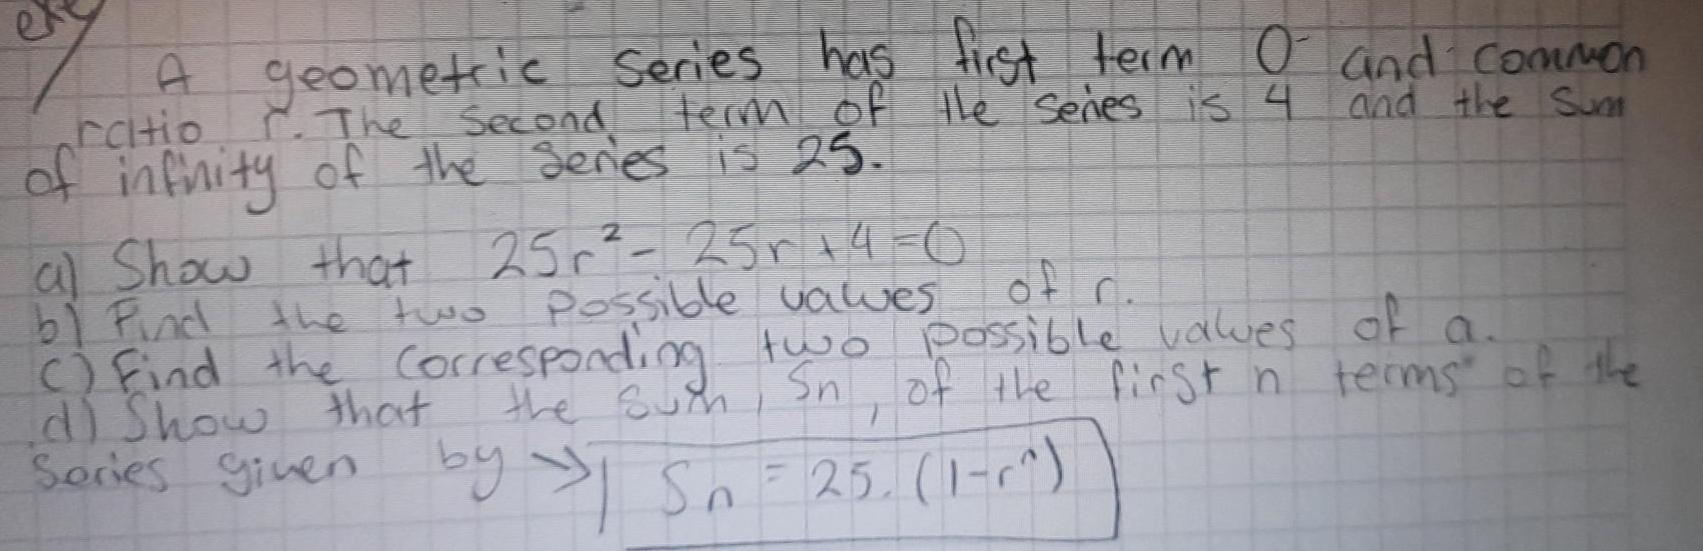 exg
A geometric series has first term O and common
ratio r. The second term of the series is 4 and the sum
of infinity of the series is 25.
a) Show that 25r² - 25r + 4 = 0
b) Find the two possible values of r.
c) Find the corresponding two possible values of a.
d) Show that the sum, Sn, of the first n terms of the
series given by → Sn = 25.(1-rⁿ)